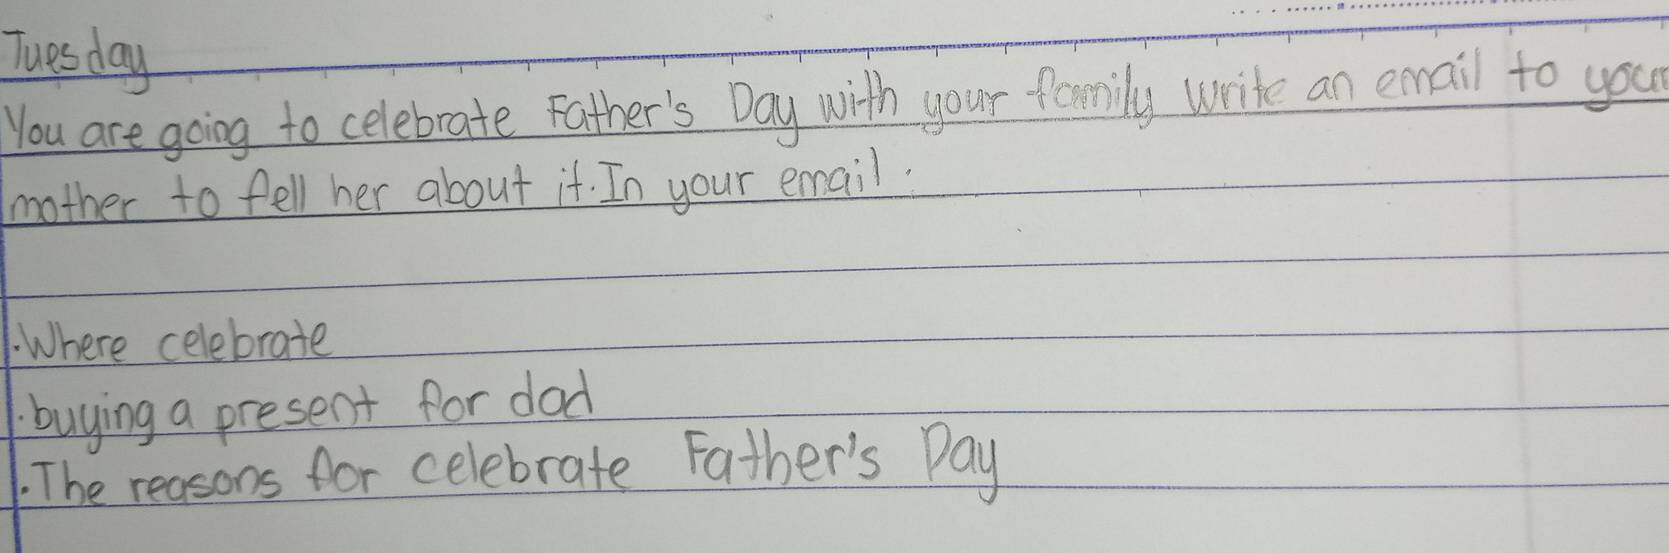 Tuesday
You are going to celebrate Father's Day with your family write an email to your
mother to fell her about it. In your email:
.Where celebrate
.buying a present for dad
.The reasons for celebrate Father's Day